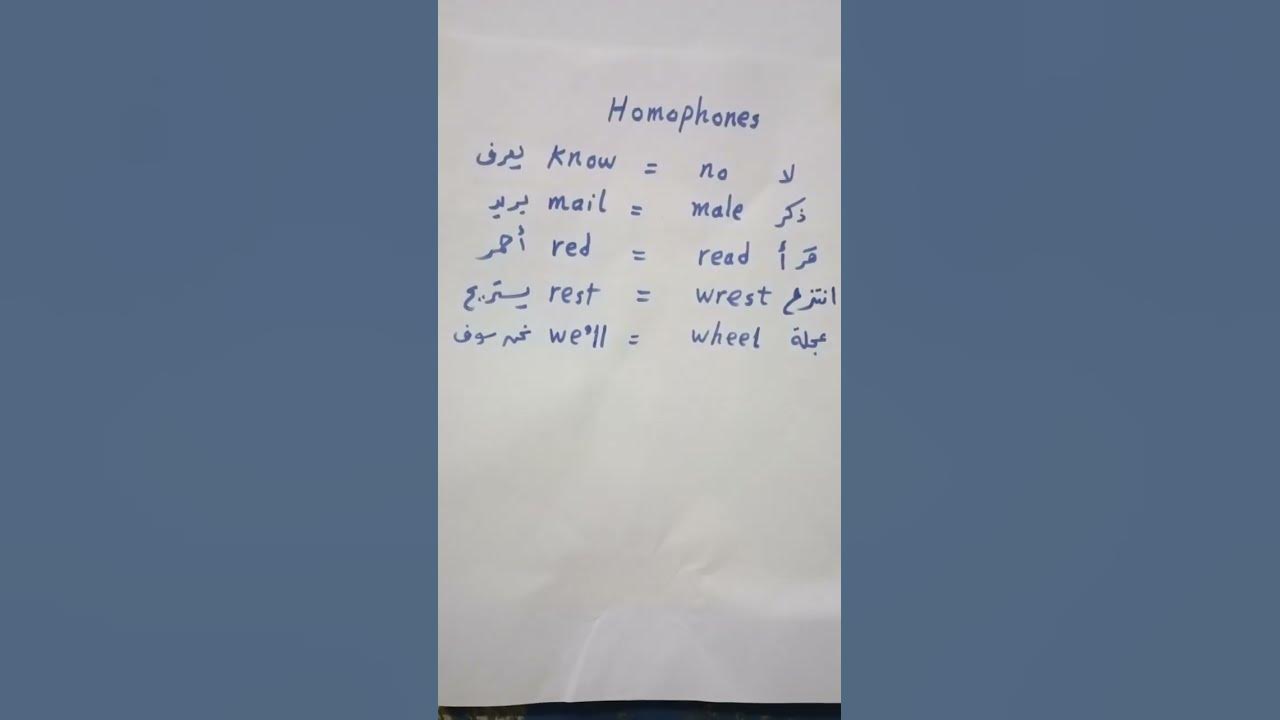 Homophones
يعرف know = no لا
بريد mail = male ذكر
أحمر red = read قرأ
يستريح rest = wrest انتزع
نحن سوف we'll = wheel عجلة